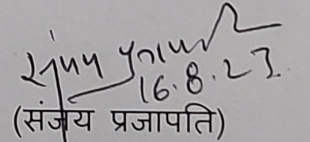 संजय प्रजापति
16.8.23.
(संजय प्रजापति)